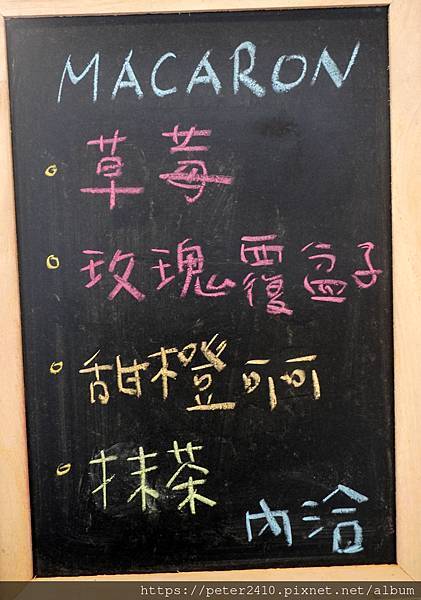 MACARON
草莓
玫瑰覆盆子
甜橙可可
抹茶
內洽
https://peter2410.pixnet.net/album